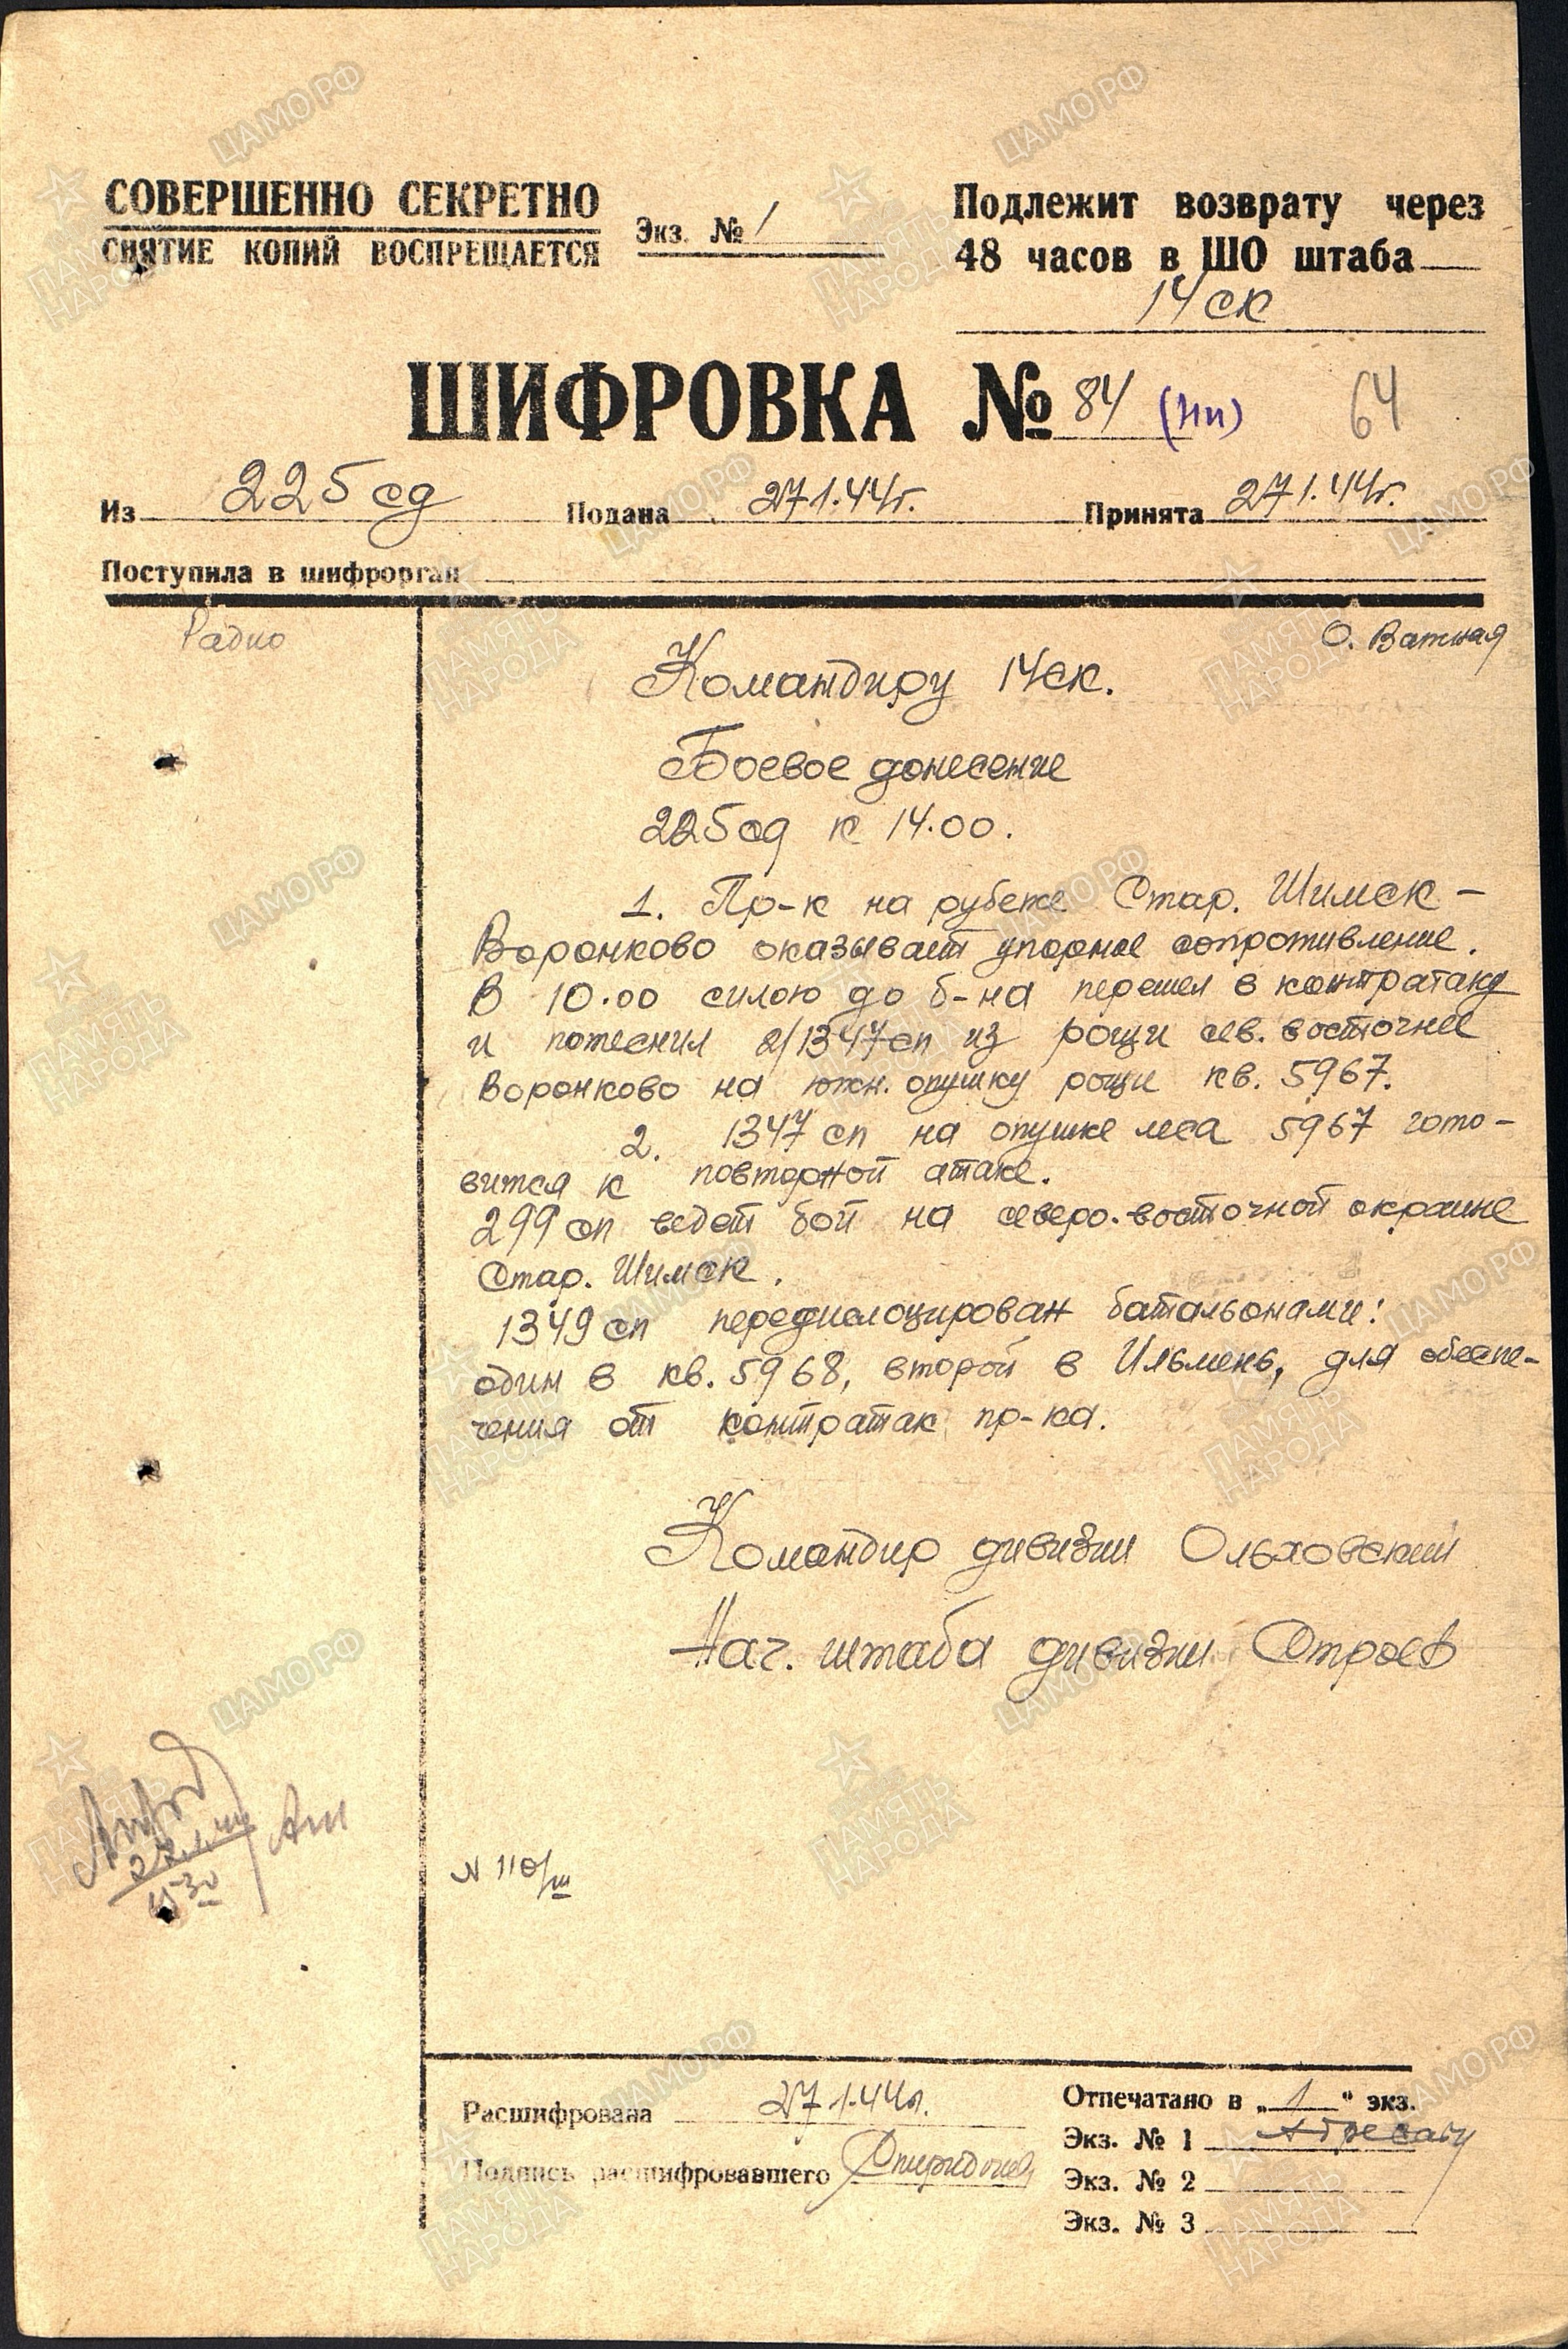 СОВЕРШЕННО СЕКРЕТНО
СНЯТИЕ КОПИЙ ВОСПРЕЩАЕТСЯ
Экз. № 1
Подлежит возврату через
48 часов в ШО штаба
14 ск
ШИФРОВКА № 84 (нп) 64
Из 225 сд Подана 27 1.44г. Принята 27 1.44г.
Поступила в шифрорган
Радио
О. Ватная
Командиру 14ск.
Боевое донесение
225сд к 14.00.
1. Пр-к на рубеже Стар. Шимск –
Воронково оказывает упорное сопротивление.
В 10.00 силою до б-на перешел в контратаку
и потеснил 2/1347сп из рощи сев. восточнее
Воронково на южн. опушку рощи кв. 5967.
2. 1347 сп на опушке леса 5967 гото-
вится к повторной атаке.
299 сп ведет бой на северо-восточной окраине
Стар. Шимск.
1349 сп передислоцирован батальонами:
один в кв. 5968, второй в Ильмень, для обеспе-
чения от контратак пр-ка.
Командир дивизии Ольховский
Нач. штаба дивизии Строев
N 110/ш
Расшифрована 27 1.44г.
Подпись расшифровавшего Спиридонов
Отпечатано в „ 1 " экз.
Экз. № 1 Адресату
Экз. № 2
Экз. № 3
ПАМЯТЬ НАРОДА
ЦАМО РФ